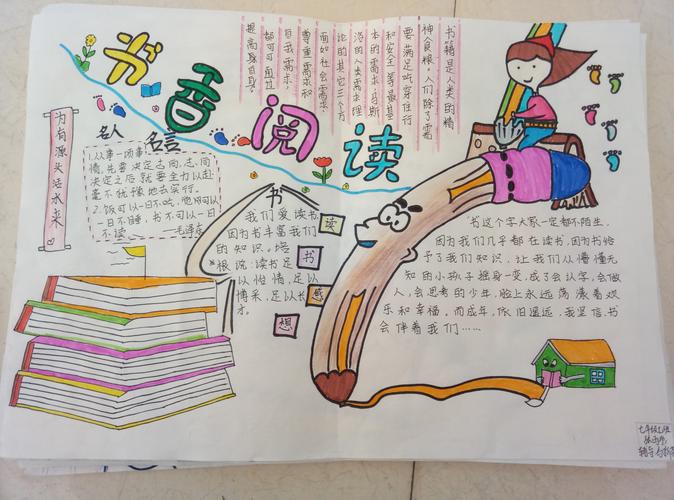 书音阅读
书籍是人类的精
神食粮,人们除了需
要满足吃穿住行
和安全等最基
本的需求,马斯
洛的人类需求理
论的其它三个方
面如社会需求,
尊重需求和
自我需求,
都可通过
提高
为有源头活水来
名人 名言
1.从事一项事
情,先要决定志向,志向
决定之后就要全力以赴
毫不犹豫地去实行。
2.饭可以一日不吃,觉可以
一日不睡,书不可以一日
不读。 —毛泽东
书
我们爱读书,
因为书丰富我们
的知识。培
根说:读书足
以怡情,足以
博采,足以长
才。
读
书
感
想
书这个字大家一定都不陌生,
因为我们几乎都在读书,因为书给
予了我们知识,让我们从懵懂无
知的小孩子摇身一变,成了会认字,会做
人,会思考的少年,脸上永远荡漾着欢
乐和幸福。而成年,依旧遥远,我坚信,书
会伴着我们……
七年级七班